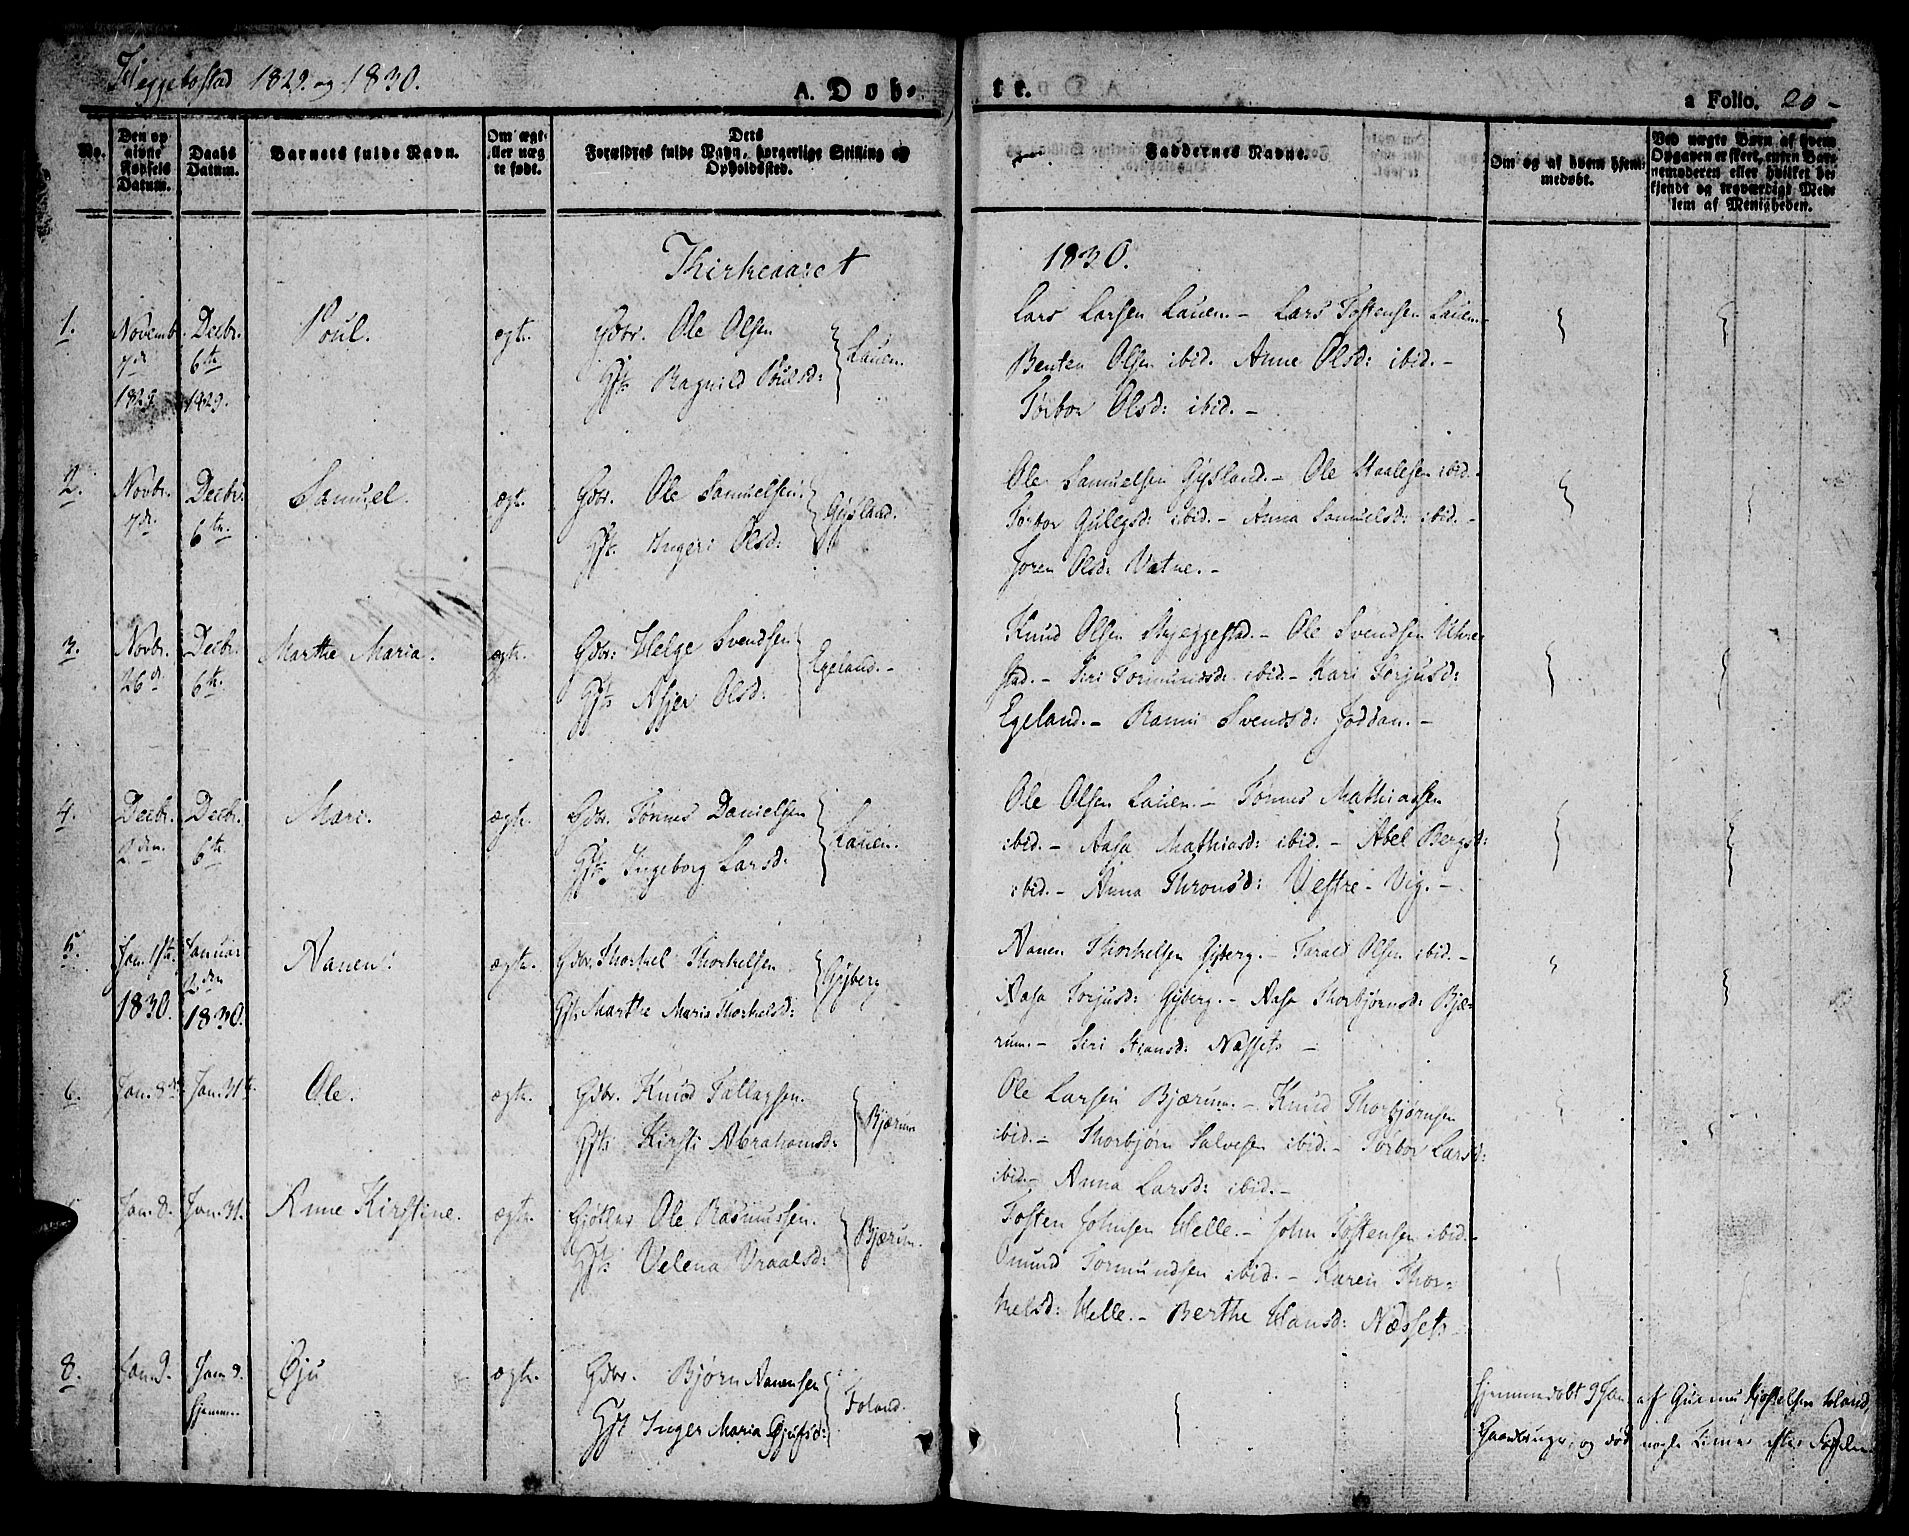 Heggebostad 1829. og 1830.
A. Døb-
te.
a Folio. 20-
No.
Den op
givne
Fødsels
Datum.
Daabs
Datum.
Barnets fulde Navn.
Om ægt
eller uæg
te født.
Dets
Forældres fulde Navn, borgerlige Stilling og
Opholdssted.
Faddernes Navne.
Om og af hvem hjem-
medøbt.
Ved uægte Børn af hvem
Opgaven er skeet, enten Bar-
nemoderen eller hvilket be-
kjendt og troværdigt Med-
lem af Menigheden.
Kirkeaaret 1830.
1.
Novemb.
7de
1829.
Decbr.
6te
1829.
Poul.
ægte.
Gdbr. Ole Olsen
Gft. Ragnild Poulsd:
Lauen.
Lars Larsen Lauen.- Lars Tostensen Lauen-
Benten Olsen ibid. Anne Olsd: ibid.-
Torbor Olsd: ibid.-
2.
Novbr.
7de
Decbr.
6te
Samuel.
ægt.
Gdbr. Ole Samuelsen
Gft. Ingeri Olsd:
Gysland.
Ole Samuelsen Gysland.- Ole Staalesen ibid.-
Torbor Gulegsd: ibid.- Anna Samuelsd: ibid.-
Joren Olsd: Vatne.-
3.
Novbr.
26d.
Decbr.
6te.
Marthe Maria.
ægte.
Gdbr: Helge Svendsen
Gft. Asjer Olsd:
Egeland.-
Knud Olsen Byeggestad.- Ole Svendsen
stad.- Siri Tormundsd: ibid- Kari Torjusd:
Egeland.- Ranni Svendsd: Joddan.-
4.
Decbr.
2den.
Decbr.
6te
Mari.
ægte.
Gdbr. Tønnes Danielsen
Gft. Ingeborg Larsd:
Lauen.
Ole Olsen Lauen.- Tønnes Mathiassen
ibid.- Aasa Mathiasd: ibid.- Abel Bergsd:
ibid.- Anna Thronsd: Vestre-Vig.-
5.
Jan. 1ste
1830.
Januar
2den
1830.
Aanen.
ægte.
Gdbr. Thorkel Thorkelsen
Gft. Marthe Maria Thorkelsd:
Gyberg
Aanen Thorkelsen Gyberg.- Tarald Olsen ibid.-
Aasa Torjusd: Gyberg.- Aasa Thorbjørnsd: Bjæ-
rum.- Siri Stiansd: Næssets-
6.
Jan. 8de
Jan. 31te
Ole.
ægte.
Gdbr. Knud Tallagsen.
Gft. Kirsti Abrahamsd:
Bjærum
Ole Larsen Bjærum.- Knud Thorbjørnsen
ibid.- Thorbjørn Salvesen ibid.- Torbor Larsd:
ibid.- Anna Larsd: ibid.-
Jan. 8.
Jan. 31.
Anne Kirstine.
ægte.
Ole Rasmussen.
Gft. Velena Vraalsd:
Bjærum.
Tosten Johnsen Helle.- John Tostensen ibid.-
Omund Tormundsen ibid.- Karen Thor-
kelsd: Helle.- Berthe Hansd: Næssets-
8.
Jan 9.
Jan 9.
hjemme
Gju
ægte.
Gdbr. Bjørn Aanensen
Gft Inger Maria Gjufsd:
Foland.
hjemmedøbt 9 Jan af Gunnu Kjostelsen Foland,
Gaardbruger, og død nogle Timer efter Fødselen